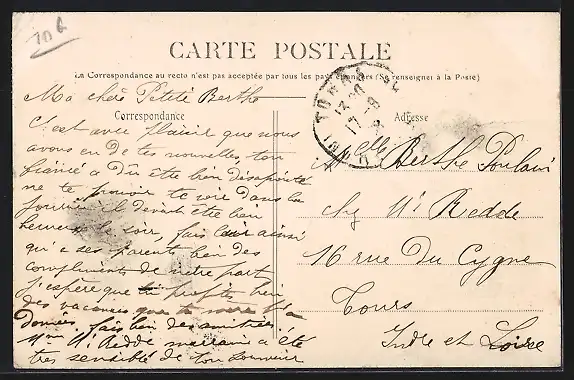 CARTE POSTALE
La Correspondance au recto n'est pas acceptée par tous les pays étrangers (Se renseigner à la Poste)
Correspondance
Ma chère Petite Berthe
C'est avec plaisir que nous
avons eu de tes nouvelles, ton
fiancé a Dû être bien désapointé
ne te pouvoir te voir dans la
journée il devait être bien
heureux le soir, fais lui ainsi
qu'a ses parent bien des
compliments de notre part
j'espère que tu profites bien
des vacances que tu
données, fais bien des amitiés
Mme Redde marraine a été
très sensible de ton souvenir
Adresse
Melle Berthe Poulain
chez Mr Redde
16 rue Du Cygne
Tours
Indre et Loire